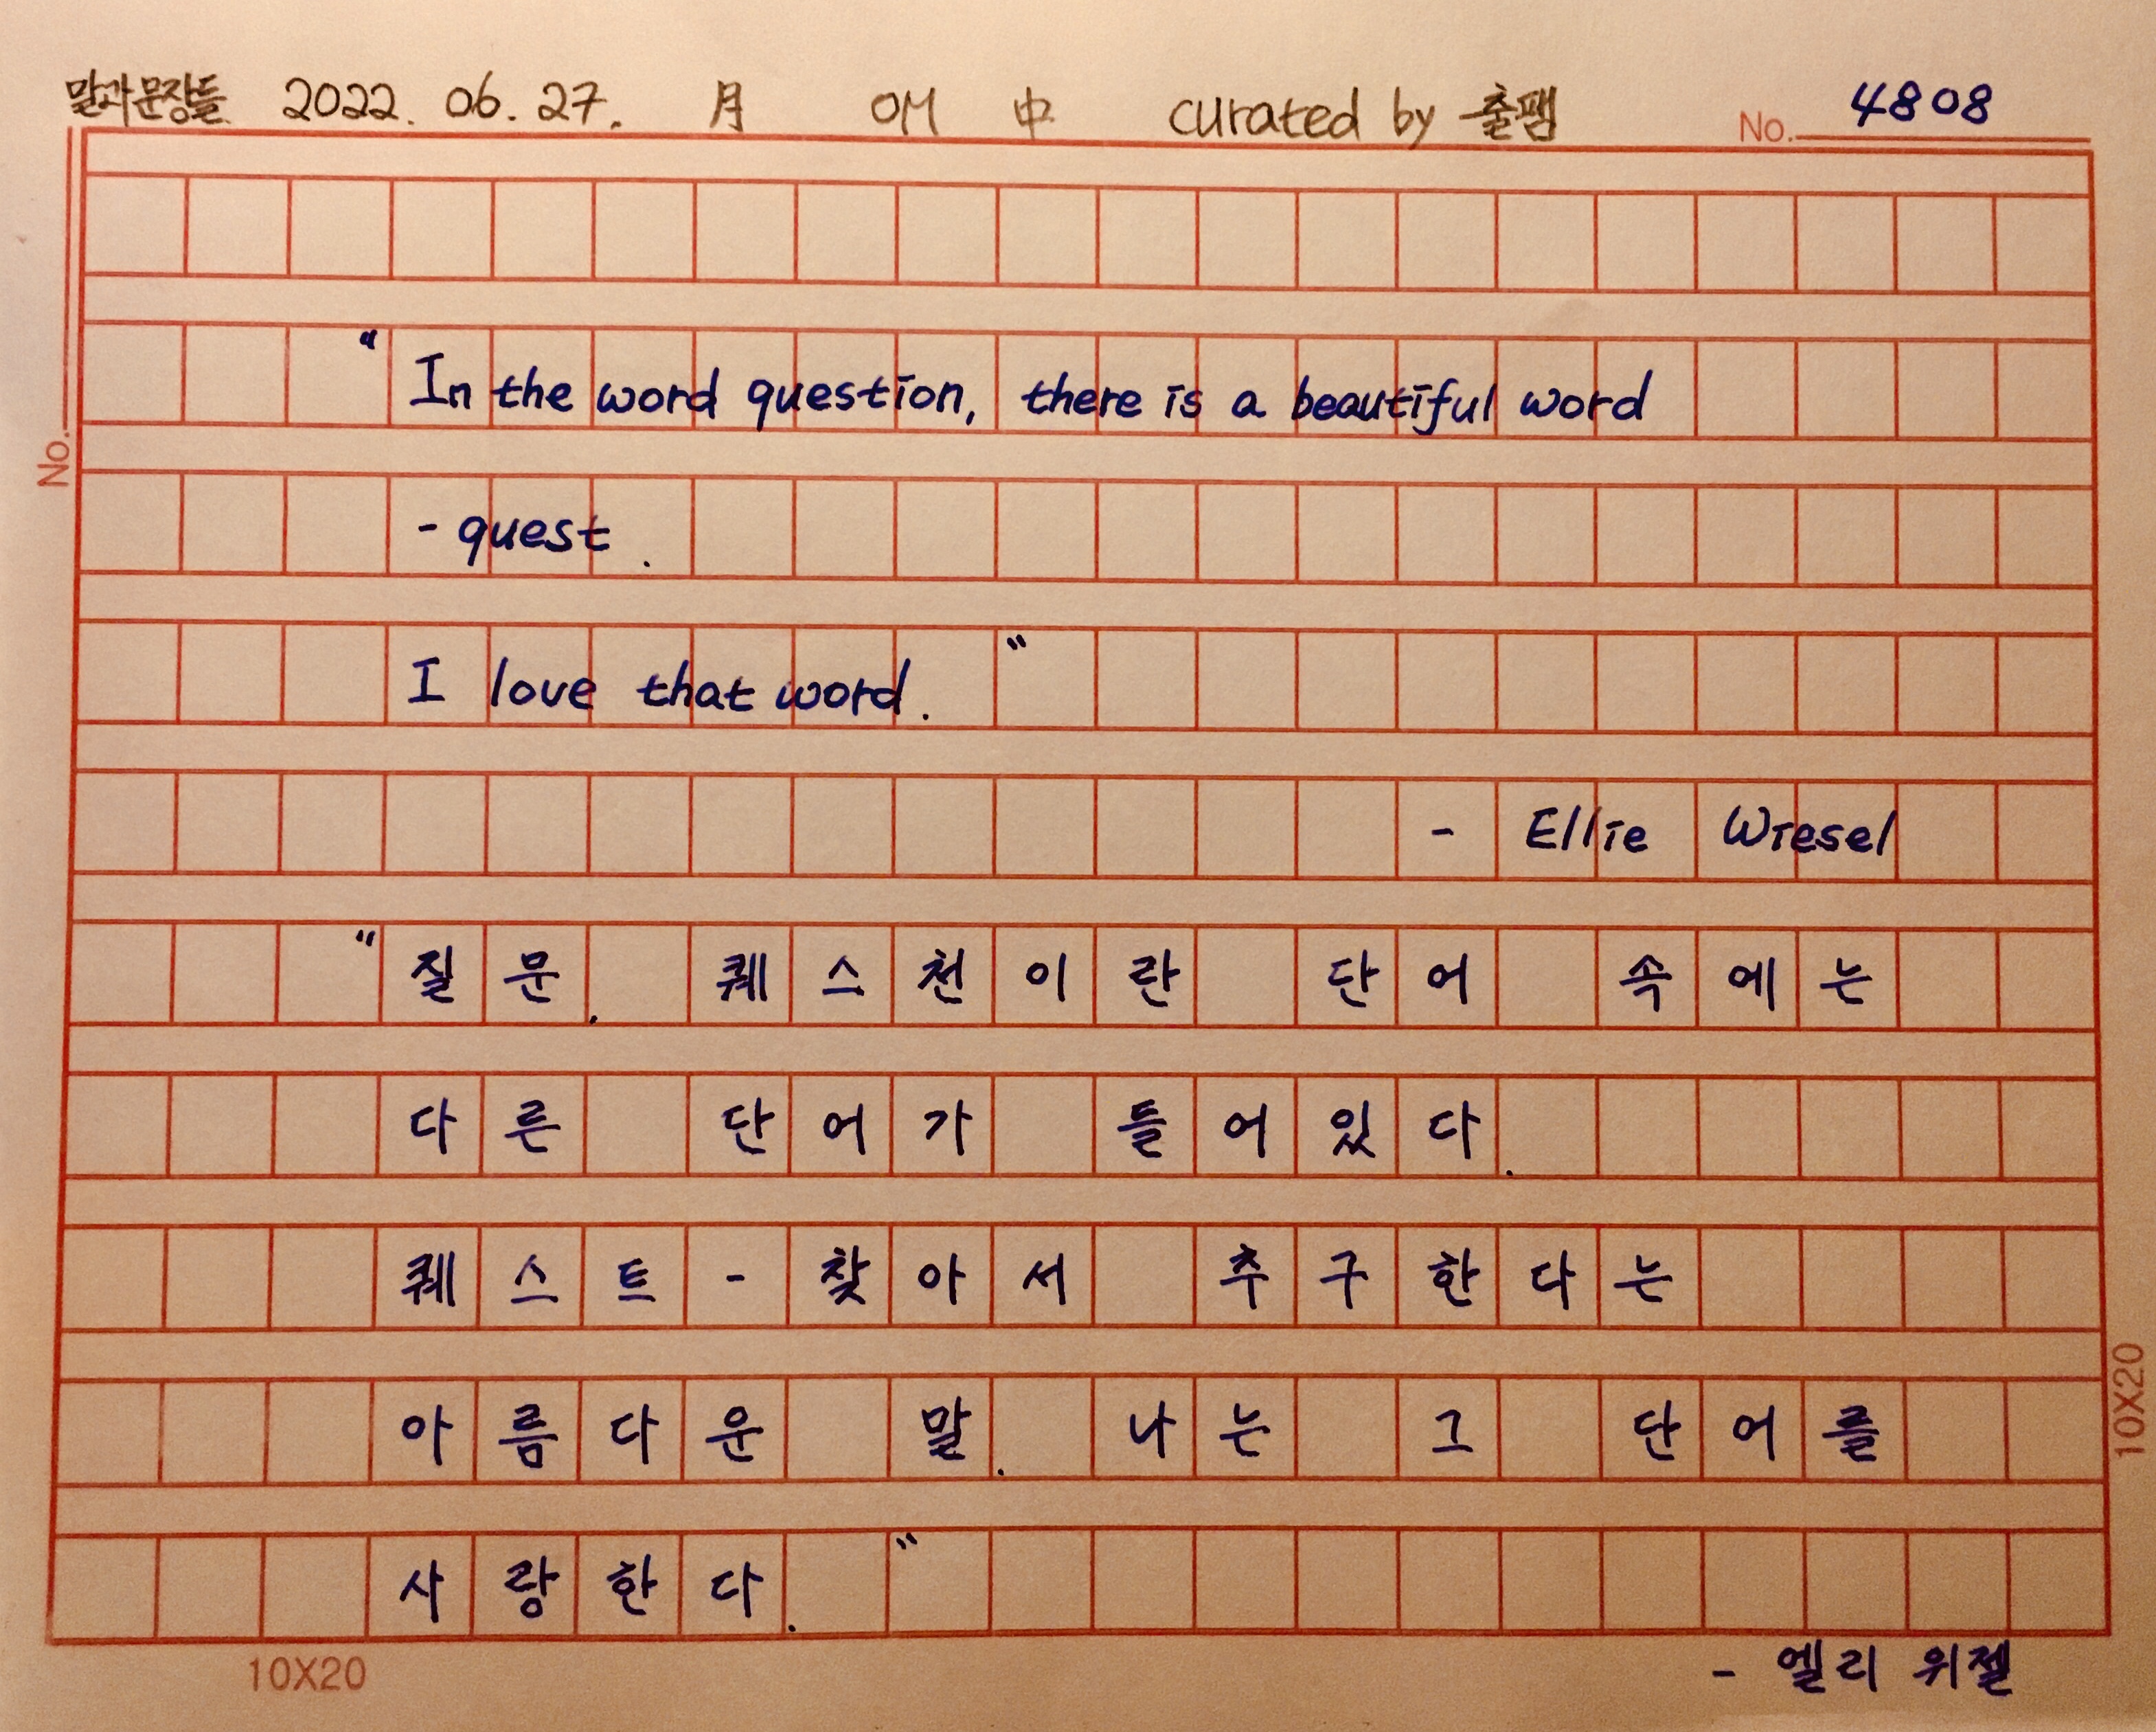 말과문장들 2022. 06. 27. 月 OM 中 curated by 출팸 No. 4808
"In the word question, there is a beautiful word
No.
- quest.
I love that word."
- Ellie Wiesel
"질문. 퀘스천이란 단어 속에는
다른 단어가 들어있다.
퀘스트-찾아서 추구한다는
아름다운 말. 나는 그 단어를
10X20
사랑한다."
10X20
- 엘리 위젤